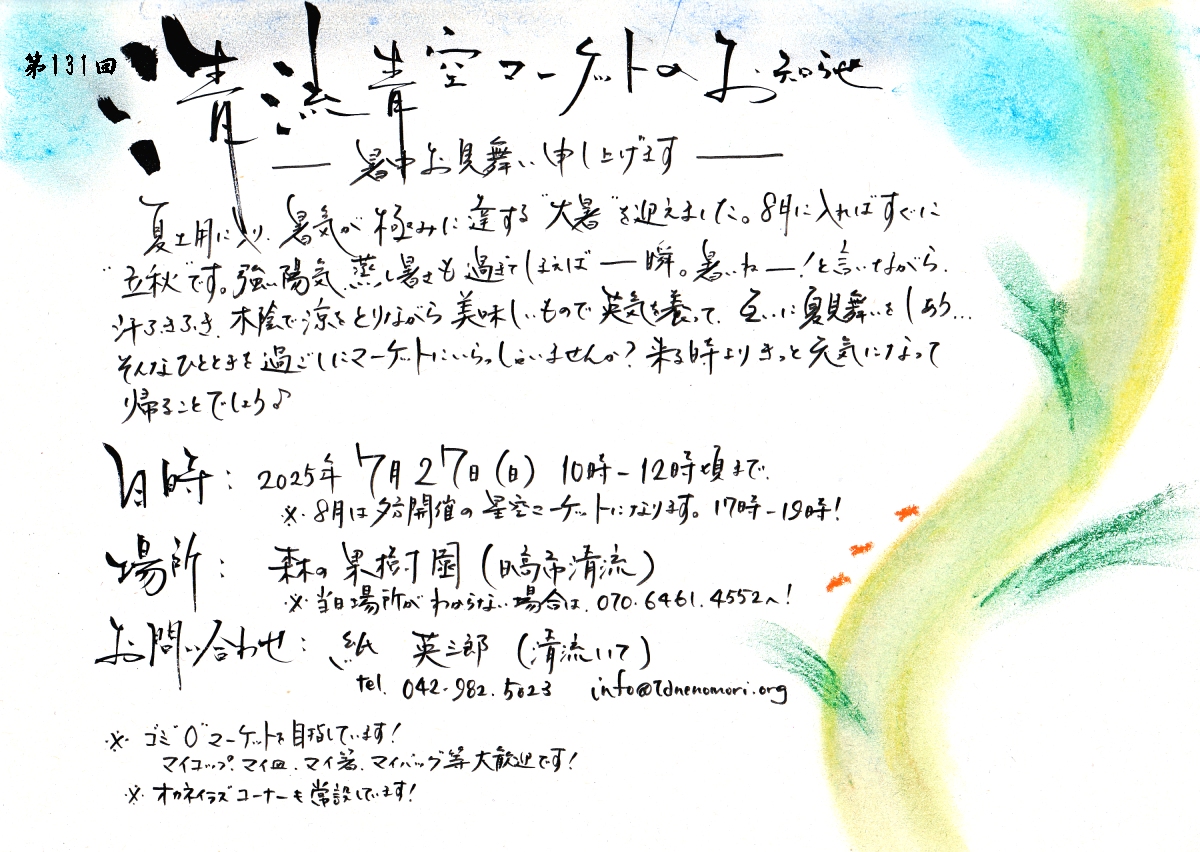 第131回
清流青空マーケットのお知らせ
― 暑中お見舞い申し上げます ―
夏土用に入り、暑気が極みに達する"大暑"を迎えました。8月に入ればすぐに
"立秋"です。強い陽気、蒸し暑さも過ぎてしまえば一瞬。暑いねー!と言いながら、
汗ふきふき、木陰で涼をとりながら美味しいもので英気を養って、互いに夏見舞いをしあう…
そんなひとときを過ごしにマーケットにいらっしゃいませんか?来る時よりきっと元気になって
帰ることでしょう♪
日時: 2025年7月27日(日) 10時-12時頃まで
※8月は夕方開催の星空マーケットになります。17時-19時!
場所: 森の果樹園(日高市清流)
※当日場所がわからない場合は、070.6461.4552へ!
お問い合わせ: 紙 英三郎(清流いて)
tel. 042-982.5023 info@tanenomori.org
※ゴミ"0"マーケットを目指しています!
マイコップ、マイ皿、マイ箸、マイバッグ等大歓迎です!
※オカネイラズコーナーも常設しています!